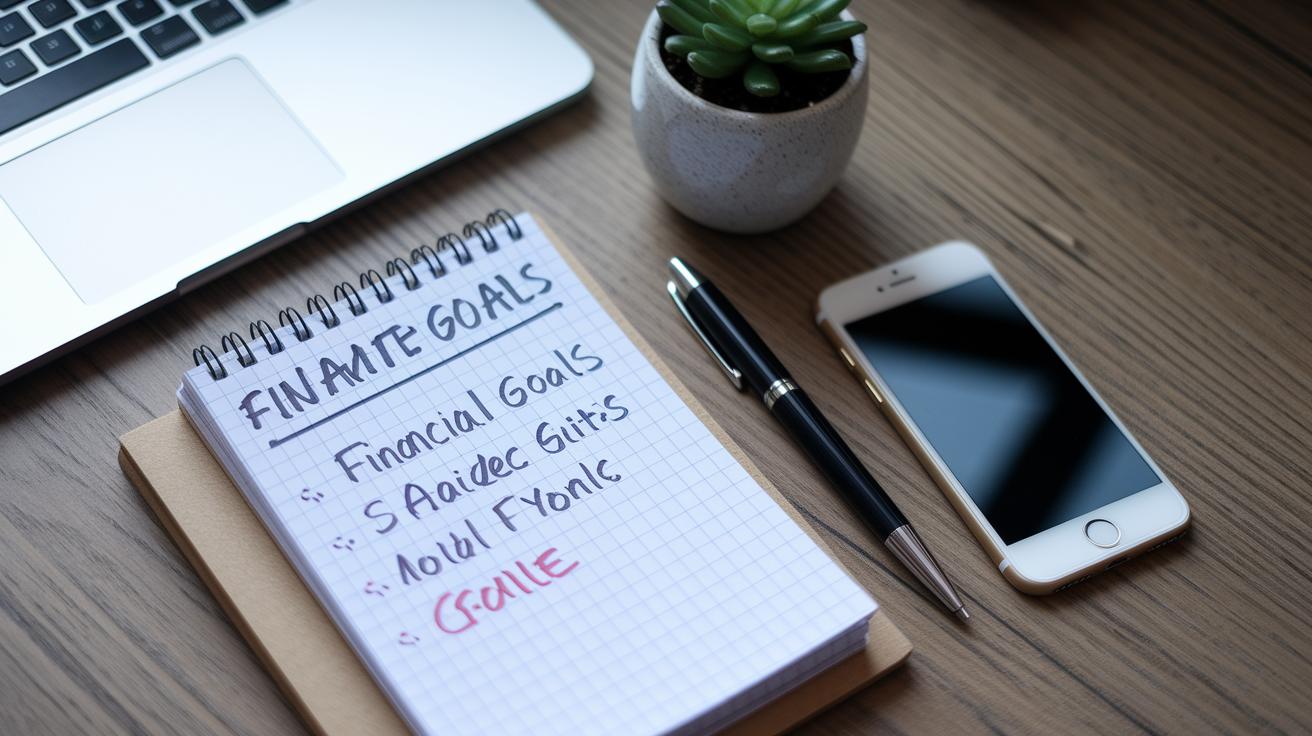 FINAMTE GOALS
Financial Goals
S Aaidec Giit:s
Aolbl FYonlc